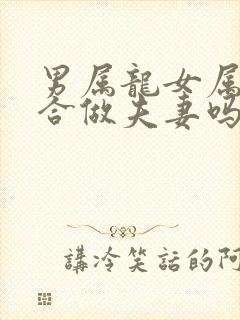 男属龍女属
合做夫妻吗
講冷笑話的阿